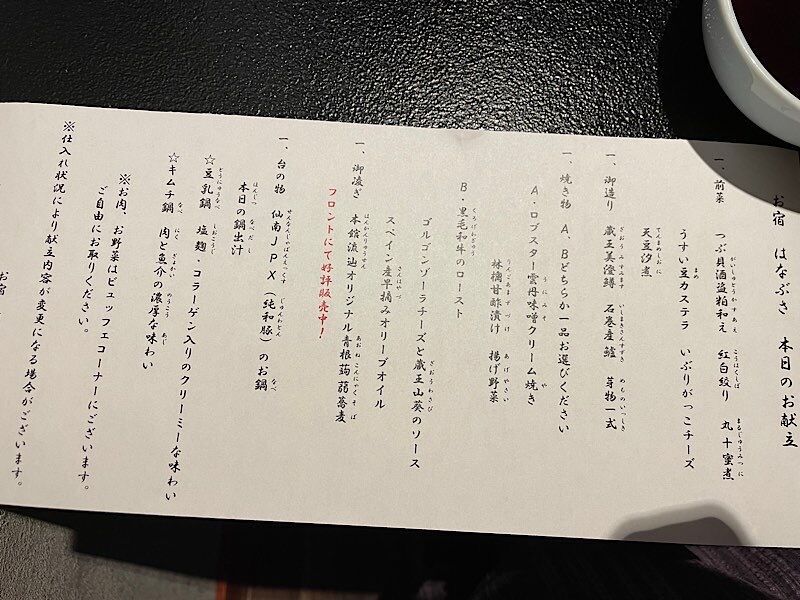 お宿 はなぶさ 本日のお献立
一、前菜 つぶ貝酒盗粕和え 紅白絞り 丸十蜜煮
うすい豆カステラ いぶりがっこチーズ
天豆汐煮
一、御造り 蔵王美澄鱒 石巻産鱸 芽物一式
一、焼き物 A、Bどちらか一品お選びください
A・ロブスター雲丹味噌クリーム焼き
林檎甘酢漬け 揚げ野菜
B・黒毛和牛のロースト
ゴルゴンゾーラチーズと蔵王山葵のソース
スペイン産早摘みオリーブオイル
一、御凌ぎ 本館流辿オリジナル青根蒟蒻蕎麦
フロントにて好評販売中！
一、台の物 仙南JPX（純和豚）のお鍋
本日の鍋出汁
☆豆乳鍋 塩麹・コラーゲン入りのクリーミーな味わい
☆キムチ鍋 肉と魚介の濃厚な味わい
※お肉、お野菜はビュッフェコーナーにございます。
ご自由にお取りください。
※仕入れ状況により献立内容が変更になる場合がございます。
お宿